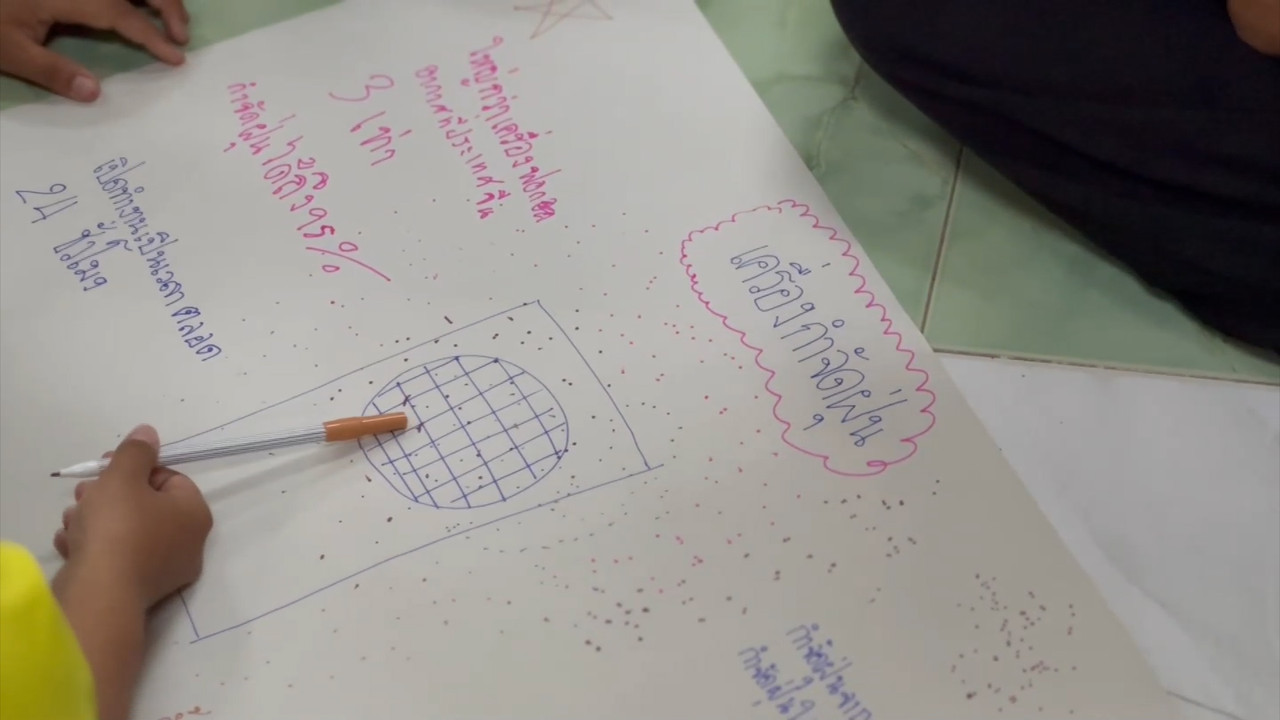 เครื่องกำจัดฝุ่น
ใหญ่กว่าเครื่องฟอก
อากาศที่ประเทศจีน
3 เท่า
กำจัดฝุ่นได้ถึง
เปิดทำงานเป็นเวลาตลอด
24 ชั่วโมง
กำจัดฝุ่นจาก
กำจัดฝุ่น